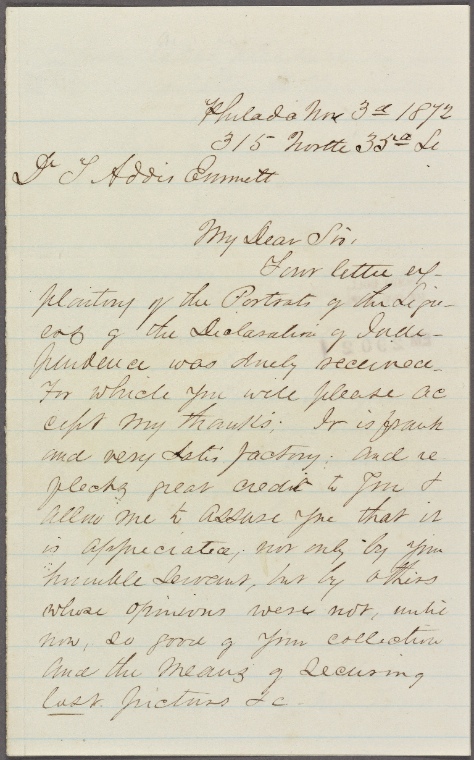 Philada Nov 3d 1872
315 North 35th St
Dr T Addis Emmett
My Dear Sir,
Your letter ex-
planitory of the Portraits of the Signe-
ers of the Declaration of Inde-
pendence was duely received.
For which you will please ac
cept my thanks; It is frank
and very Satisfactory; and re
flects great credit to You &
allow me to assure you that it
is appreciated, not only by your
humble Servant, but by others
whose opinions were not, until
now, so good of your collection
and the Means of Securing
lost pictures &c.